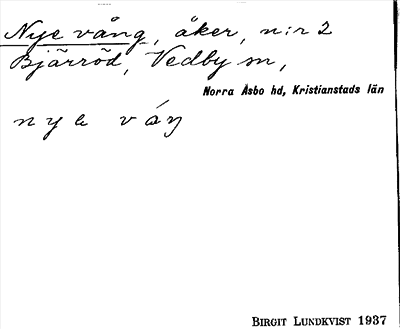 Nye vång, åker, n:r 2
Bjärröd, Vedby sn,
Norra Åsbo hd, Kristianstads län
nye váŋ
BIRGIT LUNDKVIST 1937